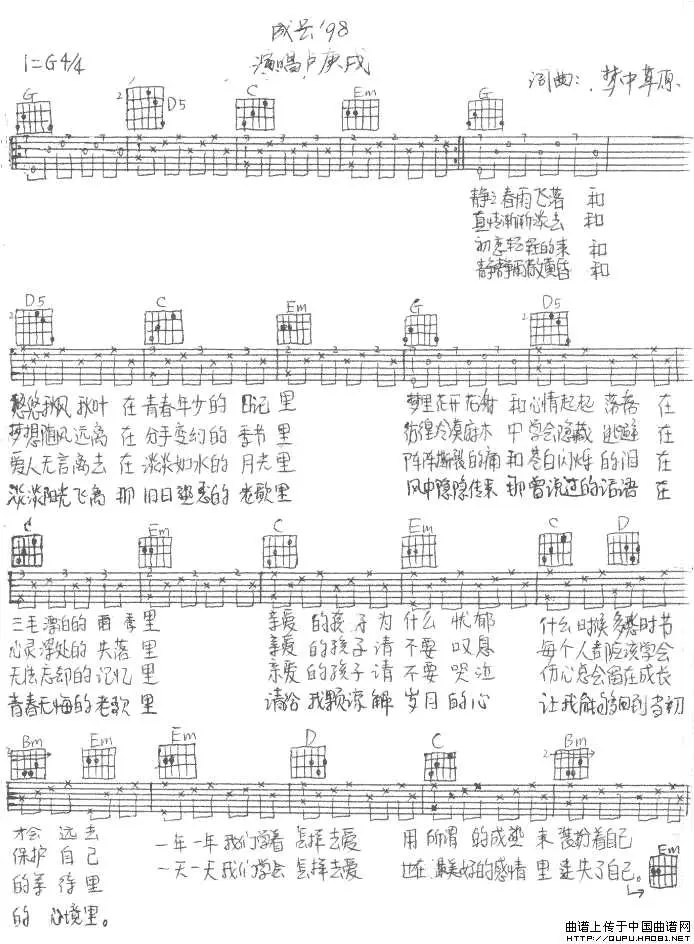 成长'98
1=G4/4 演唱卢庚戌
词曲:梦中草原
G D5 C Em G
静静春雨飞落 和
真情渐渐淡去 和
初恋轻轻的来 和
静静雨敲黄昏 和
D5 C Em G D5
悠悠秋风秋叶 在 青春年少的 日记 里 梦里花开花谢 和心情起起 落落 在
梦想随风远离 在 分手变约的 季节 里 彷徨冷漠麻木 中 学会隐藏 逃避 在
爱人无言离去 在 淡淡如水的 月光 里 阵阵撕裂的痛 和苍白闪烁 的泪 在
淡淡阳光飞离 那 旧日熟悉的 老歌 里 风中隐隐传来 那曾说过的话语 在
C Em C Em C D
三毛漂泊的 雨季里 亲爱 的孩子 为什么 忧郁 什么时候多愁时节
心灵深处的 失落 里 亲爱 的孩子 请 不要 叹息 每个人都应该学会
无法忘却的记忆里 亲爱 的孩子 请 不要 哭泣 伤心总会留在成长
青春无悔的老歌 里 请给 我颗 谅解 岁月 的心 让我能够回到当初
Bm Em Em D C Bm
才会 远去 一年一年我们学着 怎样去爱 用 所谓 的成熟 来 装扮着自己
保护 自己 一天一天我们学会 怎样去爱 也在 最美好的感情 里 迷失了自己。
的等待里 Em
的 心境里。
曲谱上传于中国曲谱网
HTTP://QUPU.HAO81.NET